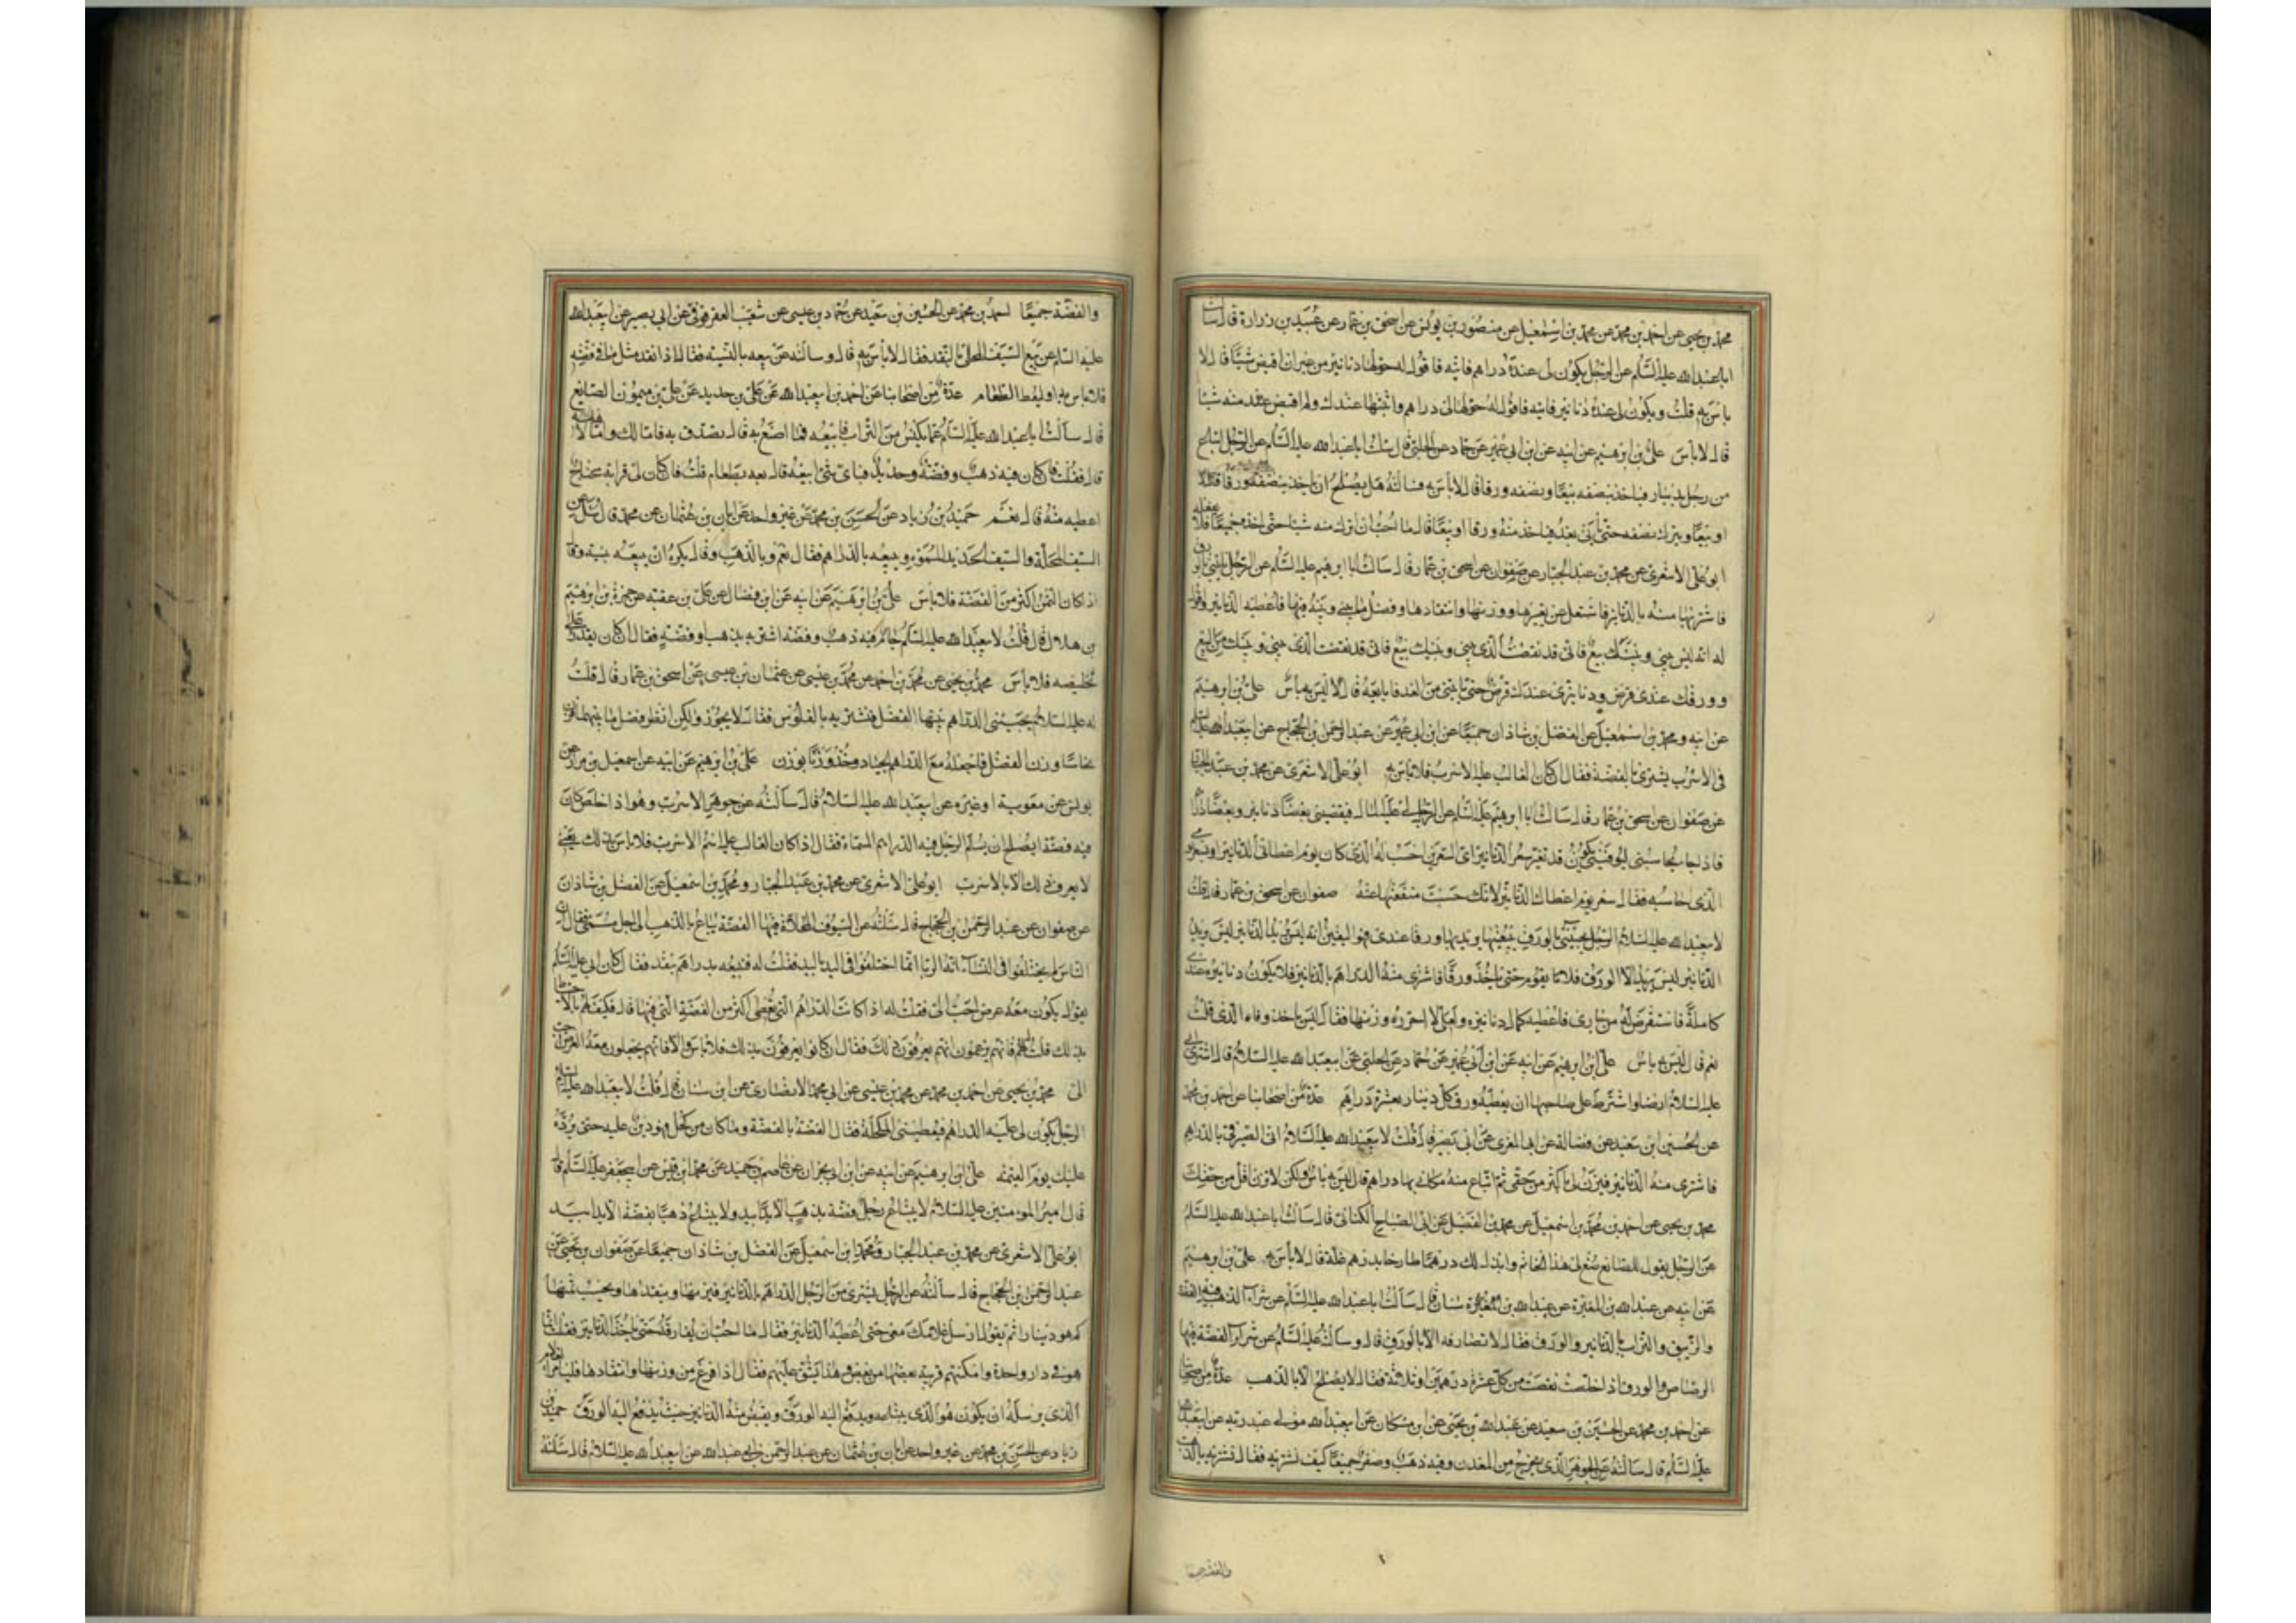 محمد بن يحيى عن احمد بن محمد عن محمد بن اسمعيل عن منصور بن يونس عن اسحق بن عمار عن عبيد بن زرارة قال سالت
ابا عبدالله عليه السلم عن الرجل يكون لى عنده دراهم فاتيه فاقول له حولها دنانير من غير ان اقبض شيئا قال لا
باس به قلت ويكون لى عنده دنانير فاتيه فاقول له حولها لى دراهم واثبتها عندك ولم اقبض عنه منه شيئا
قال لاباس على بن ابرهيم عن ابيه عن ابن ابى عمير عن حماد عن الحلبى قال سئلت ابا عبدالله عليه السلم عن الرجل ابتاع
من رجل بدينار فياخذ بنصفه بيعا وبنصفه ورقا قال لا باس به فسالته هل يصلح ان ياخذ بنصفه ورقا
او بيعا ويترك نصفه حتى ياتى بعد فياخذ منه ورقا او بيعا قال ما احب ان اترك منه شيئا حتى اخذه جميعا فلا يفعله
ابو على الاشعرى عن محمد بن عبد الجبار عن صفوان عن اسحق بن عمار قال سالت ابا ابرهيم عليه السلم عن الرجل ياتينى بالورق
فاشتريها منه بالدنانير فاشتغل عن تعييرها ووزنها وانتقادها وفضل ما بينى وبينه فيها فاعطيه الدنانير واقول
له انه ليس بينى وبينك بيع فانى قد نقضت الذى بينى وبينك من البيع
وورقك عندى قرض ودنانيرى عندك قرض حتى تاتينى من الغد فابايعه قال ليس به باس على بن ابرهيم
عن ابيه ومحمد بن اسمعيل عن الفضل بن شاذان جميعا عن ابن ابى عمير عن عبد الرحمن بن الحجاج عن ابى عبدالله عليه السلم
فى الاسرب يشترى بالفضة فقال ان كان الغالب عليه الاسرب فلا باس به ابو على الاشعرى عن محمد بن عبد الجبار
عن صفوان عن اسحق بن عمار قال سالت ابا ابرهيم عليه السلم عن الرجل لى عليه المال فيقضينى بعضا دنانير وبعضا دراهم
فاذا جاء يحاسبنى ليوفينى يكون قد تغير سعر الدنانير اى السعرين احسب له الذى كان يوم اعطانى الدنانير او سعر يومى
الذى احاسبه فقال سعر يوم اعطاك الدنانير لانك حبست منفعتها عنه صفوان عن اسحق بن عمار قال قلت
لابيعبدالله عليه السلام الرجل يجيئنى بالورق يبيعنيها يريد بها ورقا عندى فهو اليقين انه ليس يريد الدنانير ليس يريد
الدنانير ليس يريد الا الورق فلا يقوم حتى ياخذ ورقى فاشترى منه الدراهم بالدنانير فلا يكون دنانيره عندى
كاملة فاستقرض له من جارى فاعطيه كمال دنانيره ولعلى لا احرز وزنها فقال ليس ياخذ وفاء الذى له قلت
نعم قال ليس به باس على ابن ابرهيم عن ابيه عن ابن ابى عمير عن حماد عن الحلبى عن ابيعبدالله عليه السلام قال اشترى ابى
عليه السلام ارضا واشترط على صاحبها ان يعطيه ورقا كل دينار بعشرة دراهم عدة من اصحابنا عن احمد بن محمد
عن الحسين ابن سعيد عن فضالة عن ابى المغرى عن ابى بصير قال قلت لابيعبدالله عليه السلام اتى الصيرفى بالدراهم
فاشترى منه الدنانير فيزن لى باكثر من حقى ثم ابتاع منه مكانى بها دراهم قال ليس به باس ولكن لا تزن اقل من حقك
محمد بن يحيى عن احمد بن محمد بن اسمعيل عن محمد بن الفضيل عن ابى الصباح الكنانى قال سالت ابا عبدالله عليه السلم
عن الرجل يقول للصائغ صغ لى هذا الخاتم وابدل لك درهما طازجا بدرهم غلة قال لاباس به على بن ابرهيم
عن ابيه عن عبدالله بن المغيرة عن عبدالله بن سنان قال سالت ابا عبدالله عليه السلم عن شراء الذهب فيه الفضة
والزيبق والتراب بالدنانير والورق فقال لا تصارفه الا بالورق قال وسالته عليه السلم عن شراء الفضة فيها
الرصاص والورق اذا خلصت نقصت من كل عشرة درهمين او ثلاثة فقال لا يصلح الا بالذهب عدة من اصحابنا
عن احمد بن محمد عن الحسين بن سعيد عن عبدالله بن يحيى عن ابن مسكان عن ابيعبدالله مولى عبد ربه عن ابيعبدالله
عليه السلم قال سالته عن الجوهر الذى يخرج من المعدن وفيه ذهب وصفر جميعا كيف نشتريه فقال تشتريه بالذهب
والفضة جميعا
والفضة جميعا احمد بن محمد عن الحسين بن سعيد عن حماد بن عيسى عن شعيب العقرقوفى عن ابى بصير عن ابيعبدالله
عليه السلم عن بيع السيف المحلى بالنقد فقال لاباس به قال وسالته عن بيعه بالنسيه فقال اذا نقد مثل ما فى فضته
فلا باس به او ليعط الطعام عدة من اصحابنا عن احمد بن ابيعبدالله عن على بن حديد عن على بن ميمون الصائغ
قال سالت ابا عبدالله عليه السلم عما يكنس من التراب فابيعه فما اصنع به قال تصدق به فاما لك واما لاهله
قال فقلت فان كان فيه ذهب وفضة وحديد فباى شئ ابيعه قال بعه بطعام قلت فان كان لى قرابة محتاج
اعطيه منه قال نعم حميد بن زياد عن الحسن بن محمد عن غير واحد عن ابان بن عثمان عن محمد قال سئل عن
السيف المحلاة والسيف الحديد المموه يبيعه بالدراهم فقال نعم وبالذهب وقال يكره ان يبيعه بنسية وقال
اذا كان الثمن اكثر من الفضة فلا باس على بن ابرهيم عن ابيه عن ابن فضال عن على بن عقبه عن حمزة بن ابرهيم
بن هلال قال قلت لابيعبدالله عليه السلم جام فيه ذهب وفضة اشتريه بذهب او فضة فقال ان كان يقدر على
تخليصه فلا باس محمد بن يحيى عن محمد بن احمد عن محمد بن عيسى عن عثمان بن عيسى عن اسحق بن عمار قال قلت
له عليه السلام يجيئنى الدراهم بينها الفضل فنشتريه بالفلوس فقال لا يجوز ولكن انظر فضل ما بينهما فزن
نحاسا وزن الفضل فاجعله مع الدراهم الجياد وخذ وزنا بوزن على بن ابرهيم عن ابيه عن اسمعيل بن مرار عن
يونس عن معوية او غيره عن ابيعبدالله عليه السلام قال سالته عن جوهر الاسرب وهو اذا خلص كان
فيه فضة ايصلح ان يسلم الرجل فيه الدراهم المسماة فقال اذا كان الغالب عليه اسم الاسرب فلا باس بذلك يعنى
لا يعرف ذلك الا بالاسرب ابو على الاشعرى عن محمد بن عبد الجبار ومحمد بن اسمعيل عن الفضل بن شاذان
عن صفوان عن عبد الرحمن بن الحجاج قال سئلته عن السيوف المحلاة فيها الفضة يباع بالذهب الى اجل مسمى فقال ان
الناس لم يختلفوا فى النساء انه الربا انما اختلفوا فى اليد باليد فقلت له فنبيعه بدراهم بنقد فقال كان ابى عليه السلم
يقول يكون معه عرض احب الى فقلت له اذا كانت الدراهم التى تعطى اكثر من الفضة التى فيها قال فكيف لهم بالاحتياط
بذلك قلت فانهم يزعمون انهم يعرفون ذلك فقال ان كانوا يعرفون بذلك فلا باس والا فانهم يجعلون معه العرض احب
الى محمد بن يحيى عن احمد بن محمد عن محمد بن عيسى عن ابى محمد الانصارى عن ابن سنان قال قلت لابيعبدالله عليه السلم
الرجل يكون لى عليه الدراهم فيعطينى المكحلة فقال الفضة بالفضة وما كان من كحل فهو دين عليه حتى يرده
عليك يوم القيمة على ابن ابرهيم عن ابيه عن ابن ابى نجران عن عاصم بن حميد عن محمد ابن قيس عن ابيجعفر عليه السلم قال
قال امير المومنين عليه السلام لا يبتاع رجل فضة بذهب الا يدا بيد ولا يبتاع ذهبا بفضة الا يدا بيد
ابو على الاشعرى عن محمد بن عبد الجبار ومحمد ابن اسمعيل عن الفضل بن شاذان جميعا عن صفوان بن يحيى عن
عبد الرحمن ابن الحجاج قال سالته عن الرجل يشترى من الرجل الدراهم بالدنانير فيزنها وينقدها ويحسب ثمنها
كم هو دينارا ثم يقول ارسل غلامك معى حتى اعطيه الدنانير فقال ما احب ان يفارقه حتى ياخذ الدنانير فقلت انما
هو فى دار واحدة وامكنتهم قريبة بعضها من بعض وهذا يشق عليهم فقال اذا فرغ من وزنها وانتقادها فليامر الغلام
الذى يرسله ان يكون هو الذى يبايعه ويدفع اليه الورق ويقبض منه الدنانير حيث يدفع اليه الورق حميد بن
زياد عن الحسن بن محمد عن غير واحد عن ابان بن عثمان عن عبد الرحمن بن ابى عبدالله عن ابيعبدالله عليه السلام قال سئلته